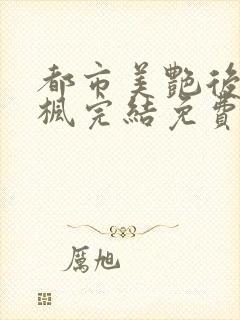 都市美艷後
楓完結免費
厲旭